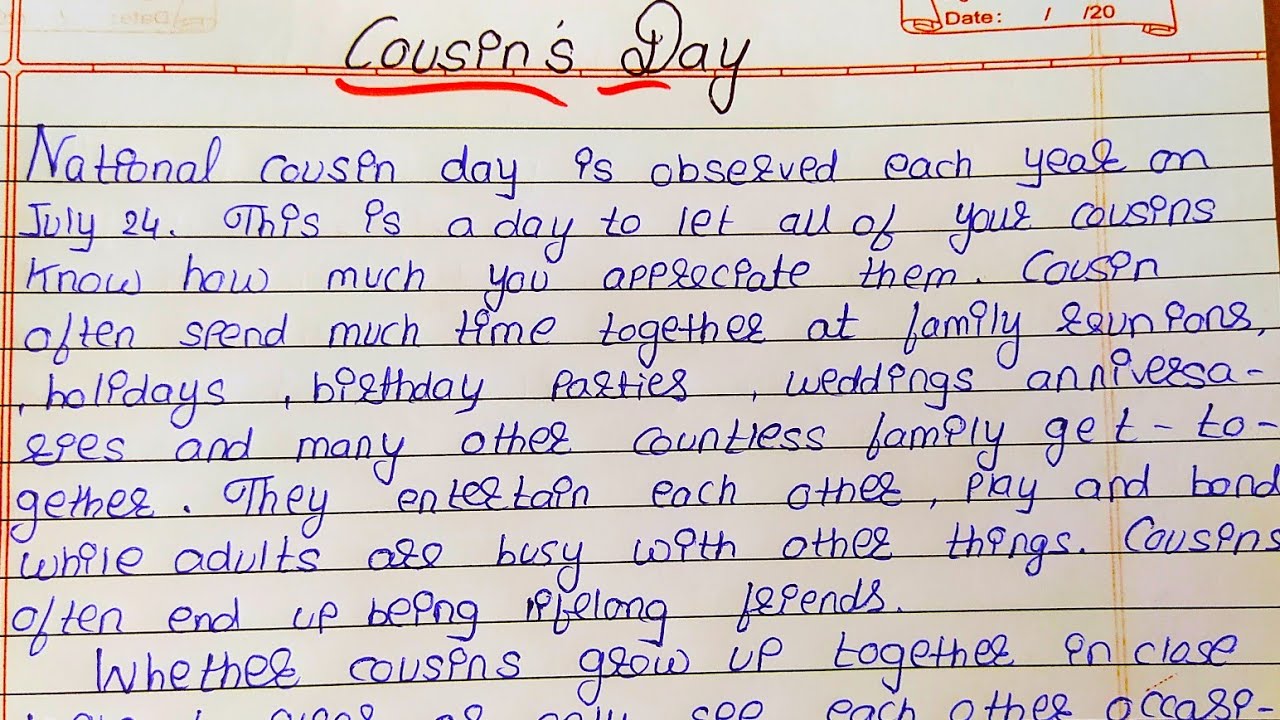 Date: / /20
Cousin's Day
National cousin day is observed each year on
July 24. This is a day to let all of your cousins
know how much you appreciate them. Cousin
often spend much time together at family reunions,
, holidays , birthday parties , weddings anniversa-
ries and many other countless family get-to-
gether. They entertain each other, play and bond
while adults are busy with other things. Cousins
often end up being lifelong friends.
Whether cousins grow up together in close
only see each other occasi-